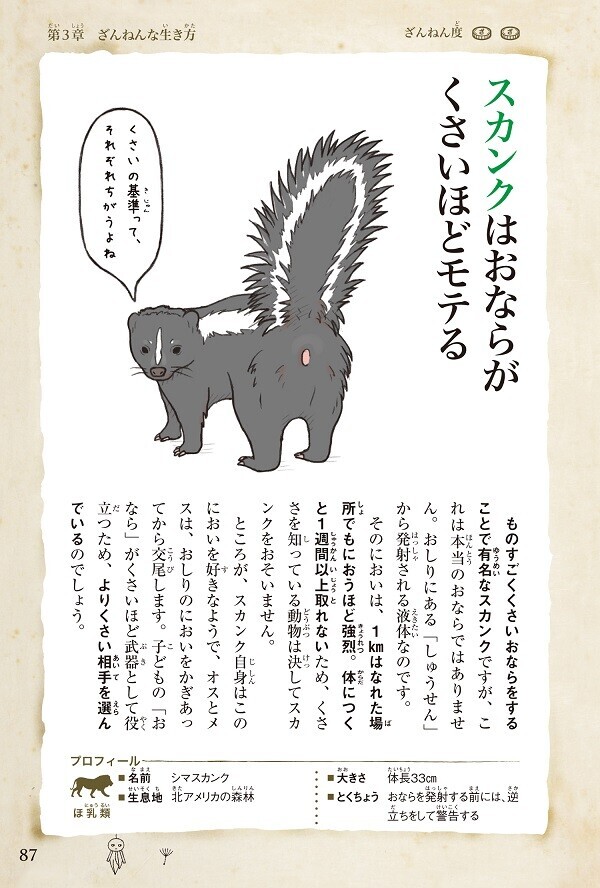 第3章 ざんねんな生き方
ざんねん度
スカンクはおならが
くさいほどモテる
くさいの基準って、
それぞれちがうよね
ものすごくくさいおならをする
ことで有名なスカンクですが、こ
れは本当のおならではありませ
ん。おしりにある「しゅうせん」
から発射される液体なのです。
そのにおいは、1kmはなれた場
所でもにおうほど強烈。体につく
と1週間以上取れないため、くさ
さを知っている動物は決してスカ
ンクをおそいません。
ところが、スカンク自身はこの
においを好きなようで、オスとメ
スは、おしりのにおいをかぎあっ
てから交尾します。子どもの「お
なら」がくさいほど武器として役
立つため、よりくさい相手を選ん
でいるのでしょう。
プロフィール
ほ乳類
■名前 シマスカンク
■生息地 北アメリカの森林
■大きさ 体長33cm
■とくちょう おならを発射する前には、逆
立ちをして警告する
87